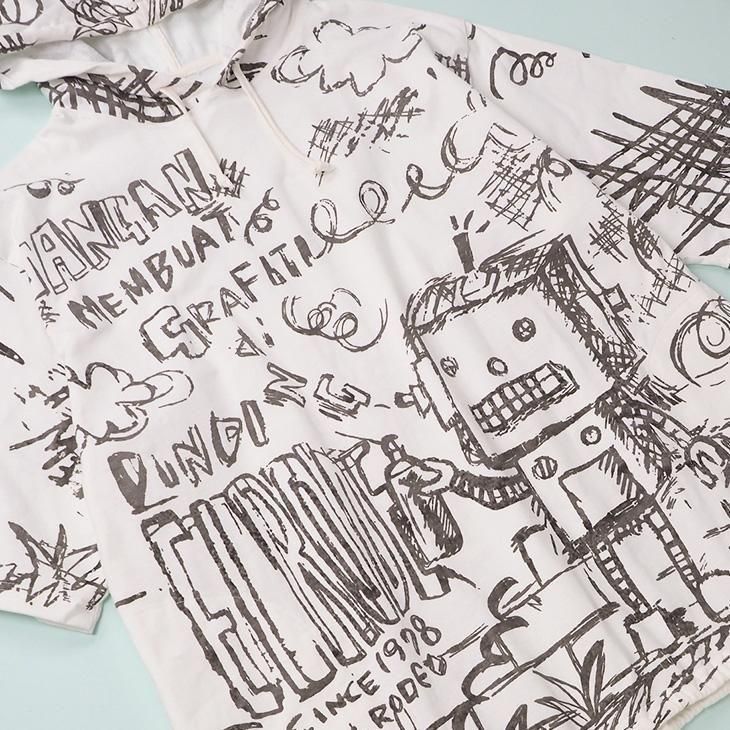 JANGAN
MEMBUAT
GRAFITI
di
DUNDING
SINCE 1978
RODEO